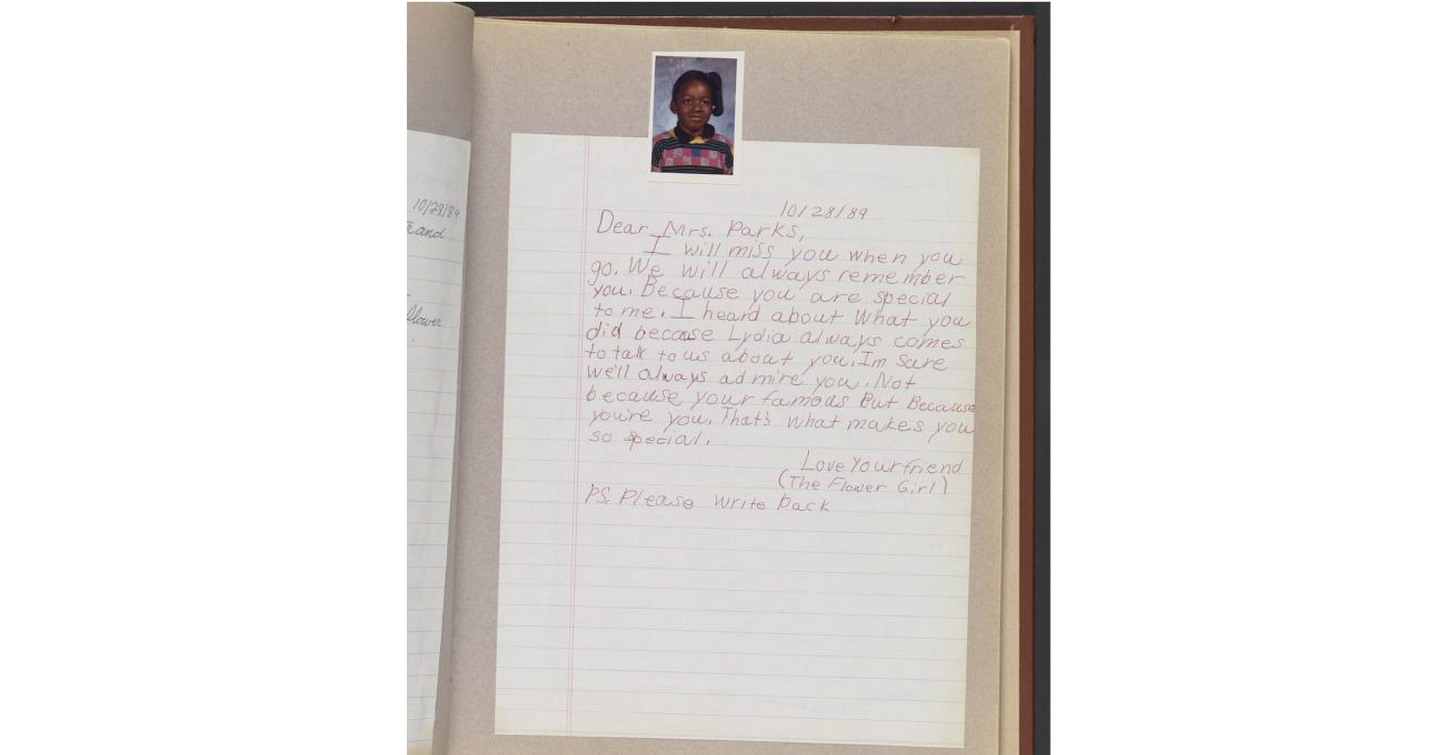 10/28/89
and
flower
10/28/89
Dear Mrs. Parks,
I will miss you when you
go. We will always remember
you. Because you are special
to me. I heard about what you
did because Lydia always comes
to talk to us about you. Im sure
we'll always admire you. Not
because your famous But Because
you're you. That's what makes you
so special.
Love Your friend
(The Flower Girl)
PS. Please write back